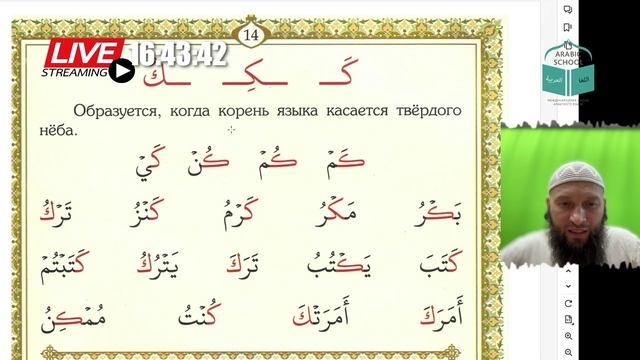 LIVE 16:43:42
STREAMING
14
ARABIC
SCHOOL
كَـ ـكِـ ـكْ
Образуется, когда корень языка касается твёрдого
нёба.
كَمْ كُمْ كُنْ كَيْ
بَكْرُ مَكْرُ كَرْمُ كَنْزُ تَرْكُ
كَتَبَ يَكْتُبُ تَرَكَ يَتْرُكُ كَتَبْتُمْ
أَمَرَكَ أَمَرَتْكَ كُنْتُ مُمْكِنُ